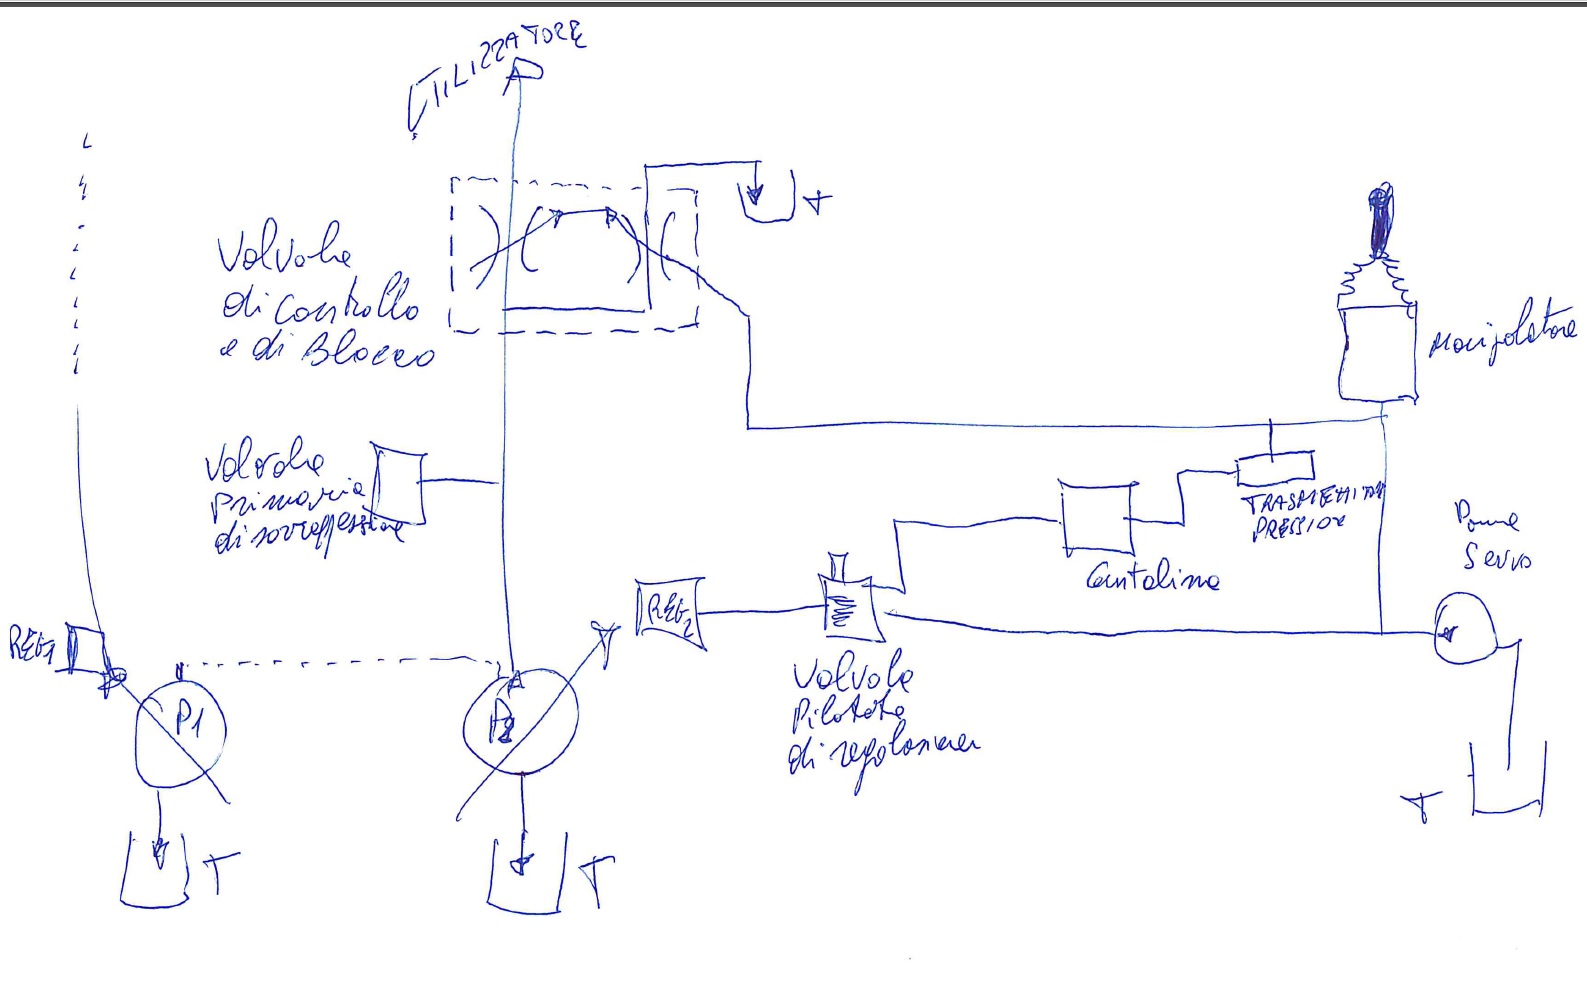 UTILIZZATORE
T
Valvola
di Controllo
e di Blocco
Manipolatore
Valvola
Primaria
di sovrappressione
TRASMETTITOR
PRESSION
Pompa
Servo
Centralina
REG1
REG2
P1
P2
Valvola
Pilotata
di regolazione
T
T
T